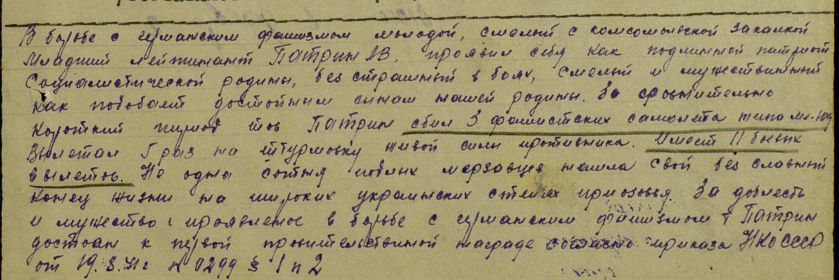 В борьбе с германским фашизмом молодой, смелый с комсомольской закалкой
Младший лейтинант Патрин АВ, проявил себя как подлинной патриот
Социалистической родины, без страшный в боях, смелый и мужиственный
как подобоает достойным сынам нашей родины. За сровнительно
короткий пириод тов Патрин сбил 3 фашистских самолета типа Ме-109
Вылетал 5 раз на штурмовку живой силы противника. Имеет 11 боевых
вылетов. Не одна сотня подлых мерзавцев нашла свой без славный
конец жизни на широких украинских степях приозовья. За доблесть
и мужество проявленое в борьбе с германским фашизмом т Патрин
достоин к первой правительственной награде согласно приказа НКО СССР
от 19.8.41г N 0299 § 1 п 2